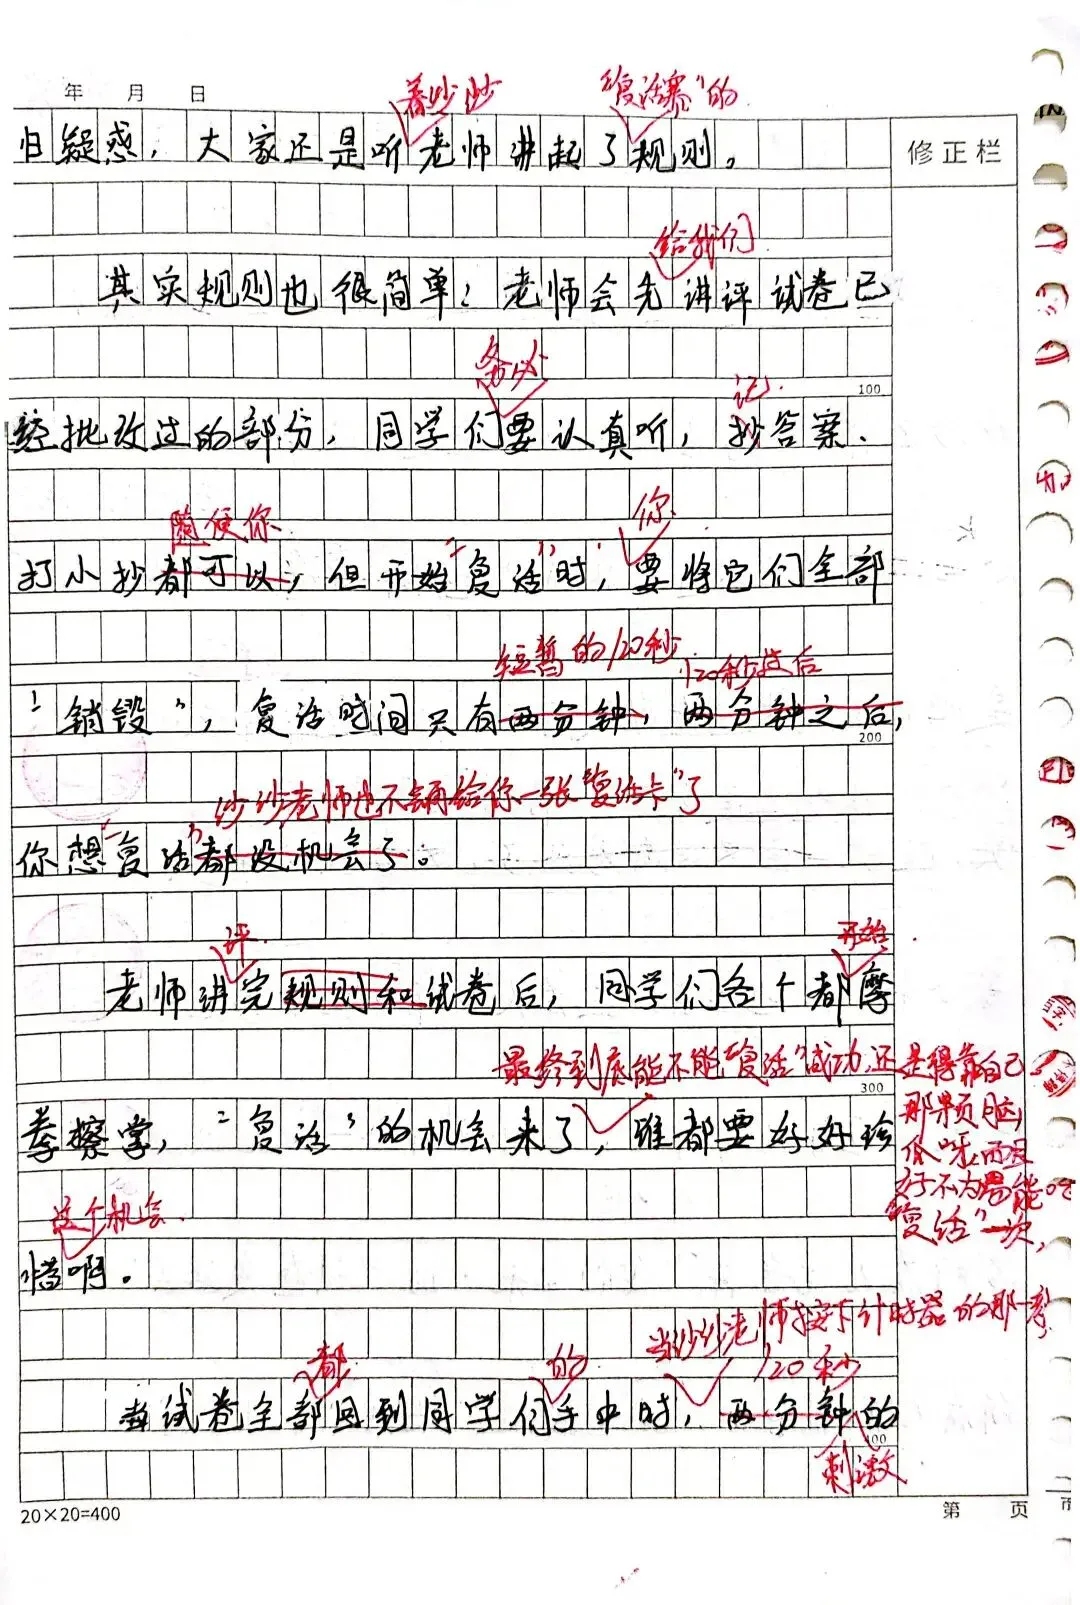 年 月 日
着沙沙 "复活赛"的
归疑惑，大家还是听老师讲起了规则。
修正栏
给我们
其实规则也很简单：老师会先讲评试卷已
务必 记
100
经批改过的部分，同学们要认真听，抄答案、
随便你 你
打小抄都可以，但开始"复活"时，要将它们全部
短暂的120秒 120秒过后
"销毁"，复活时间只有两分钟，两分钟之后，
200
沙沙老师也不会再给你一张"复活卡"了
你想"复活"都没机会了。
评 开始
老师讲完规则和试卷后，同学们各个都摩
最终到底能不能"复活"成功，还是得靠自己
300
那颗脑
拳擦掌，"复活"的机会来了，谁都要好好珍
瓜呀，而且
好不容易能
这个机会
"复活"一次，
惜啊。
当沙沙老师按下计时器的那一刻，
都 的 120秒
当试卷全部回到同学们手中时，两分钟的
400
刺激
20×20=400
第 页